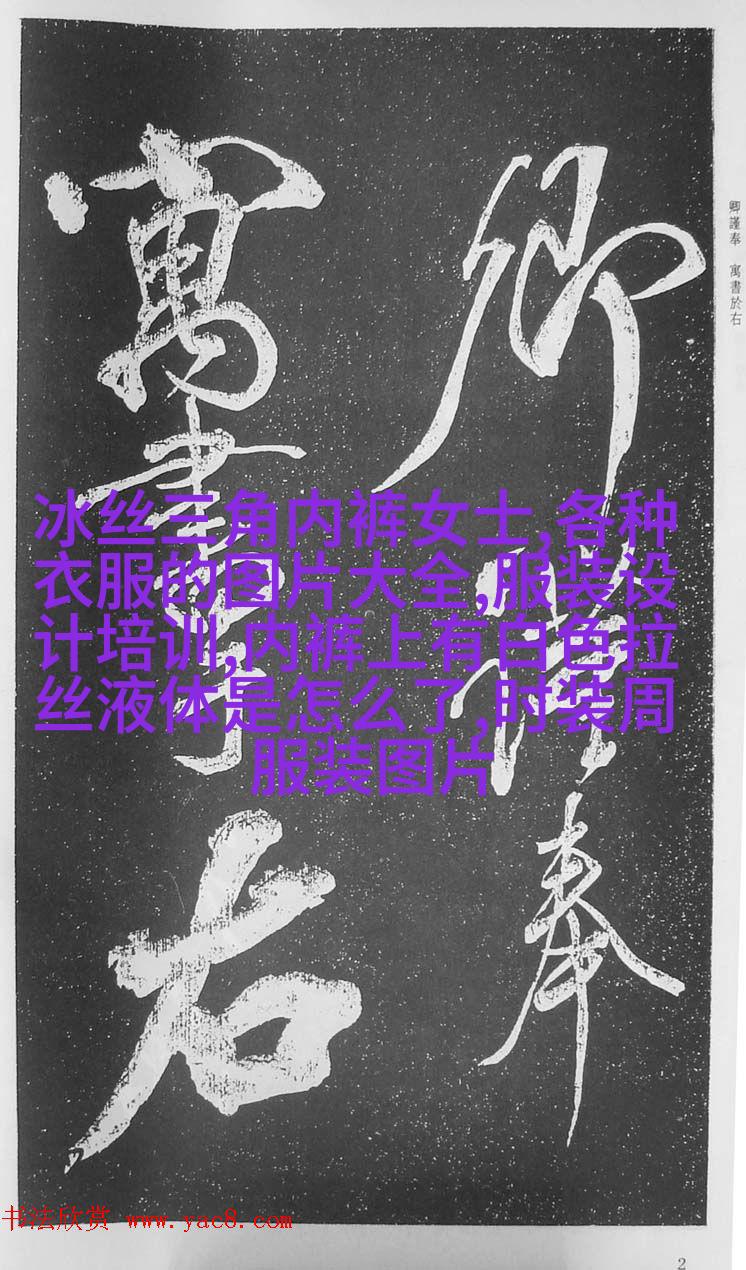 卿謹奉
寓書於右
卿謹奉　寓書於右
冰丝三角内裤女士,各种
衣服的图片大全,服装设
计培训,内裤上有白色拉
丝液体是怎么了,时装周
服装图片
书法欣赏 www.yac8.com
2